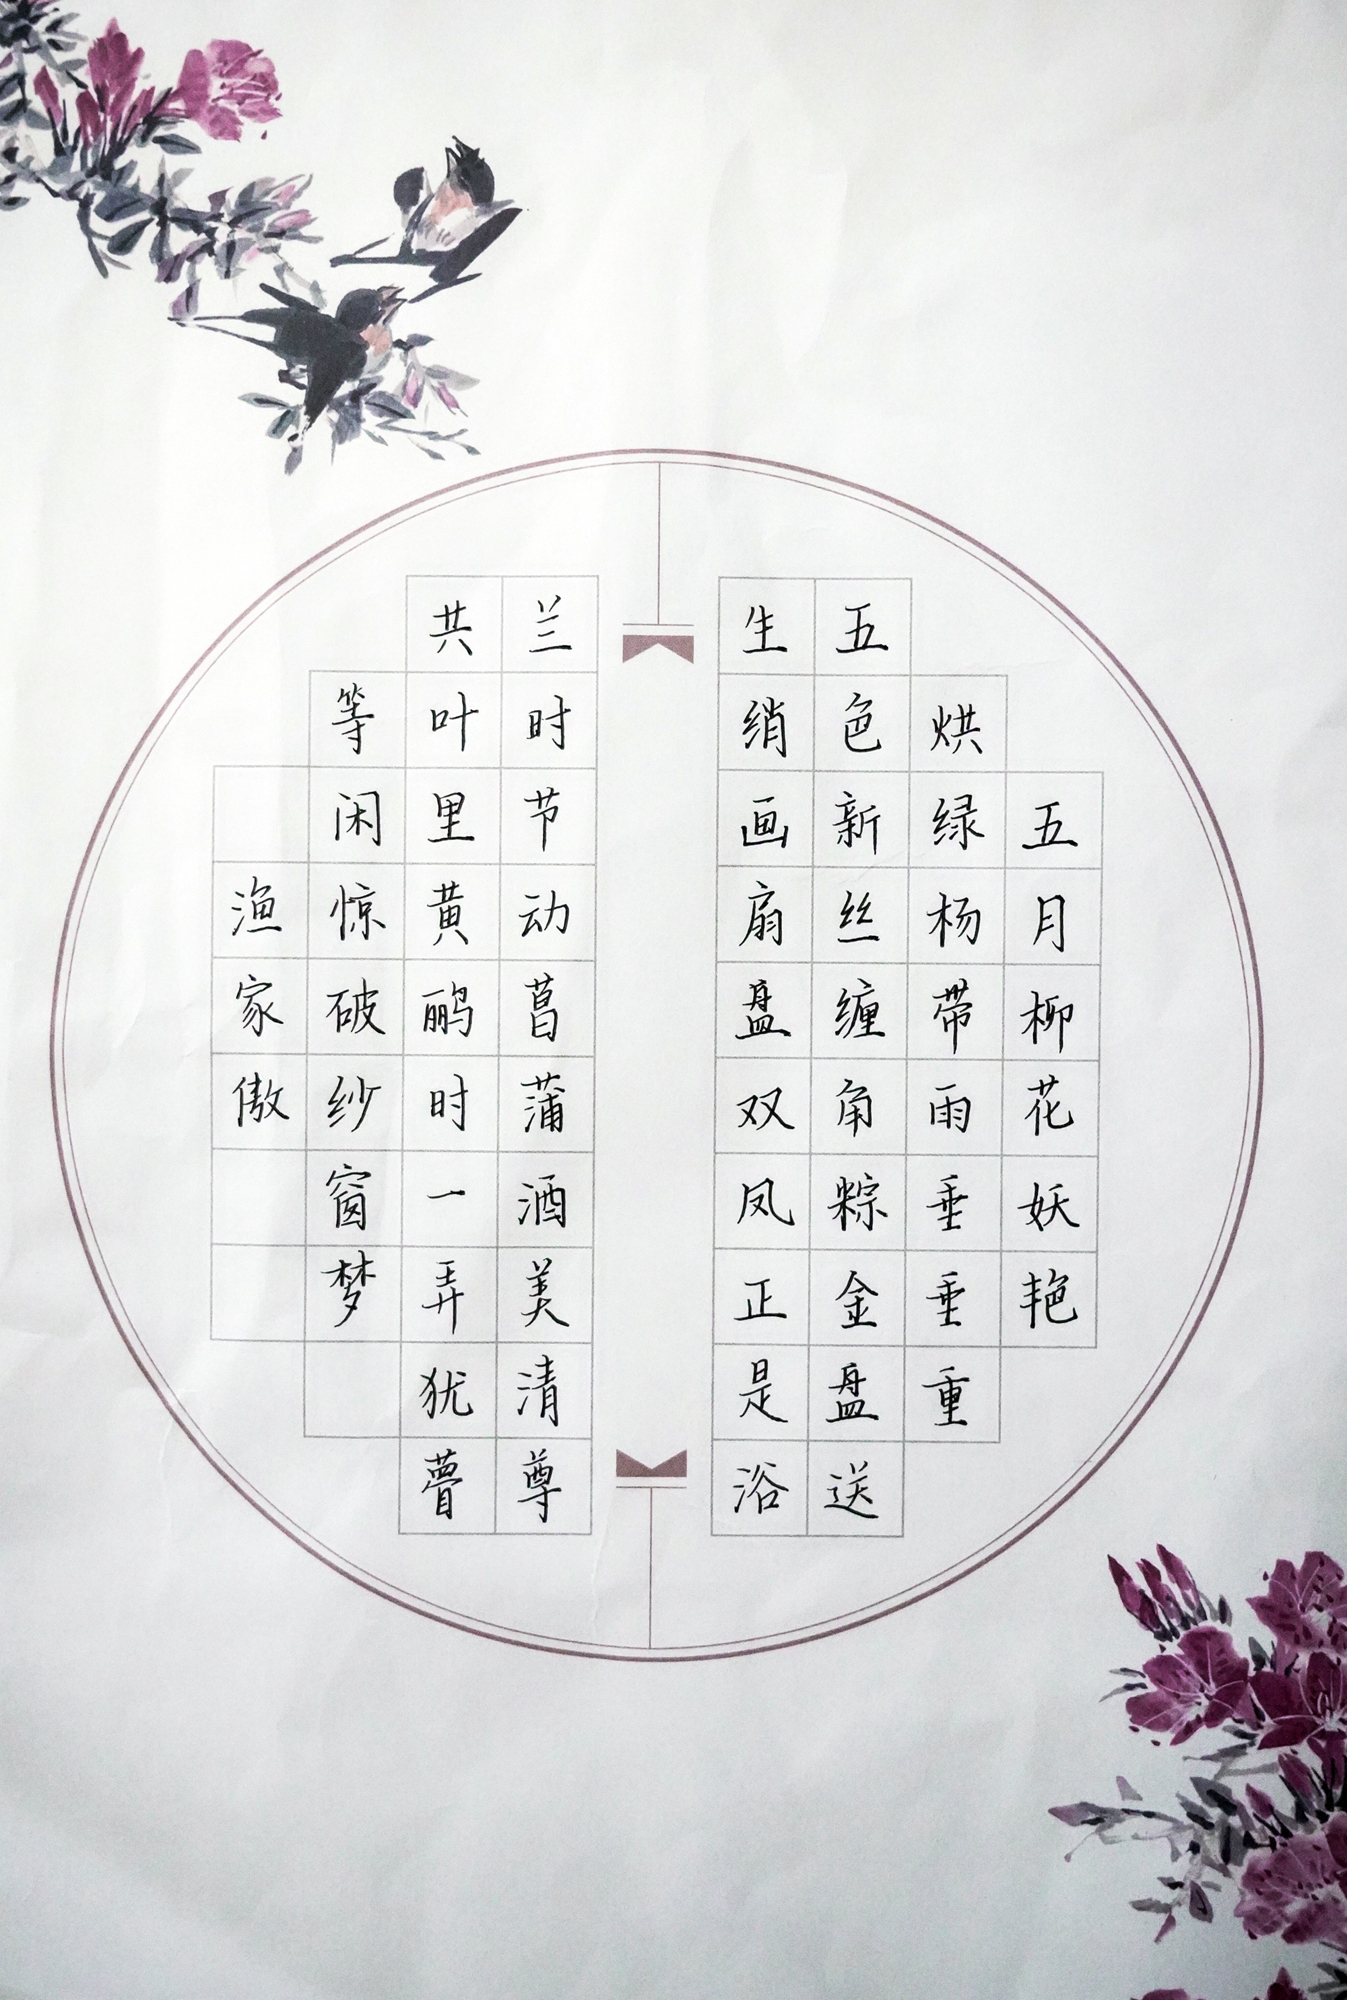 五月柳花妖艳
烘绿杨带雨垂垂重
五色新丝缠角粽金盘送
生绡画扇盘双凤正是浴
兰时节动菖蒲酒美清尊
共叶里黄鹂时一弄犹瞢
等闲惊破纱窗梦
渔家傲